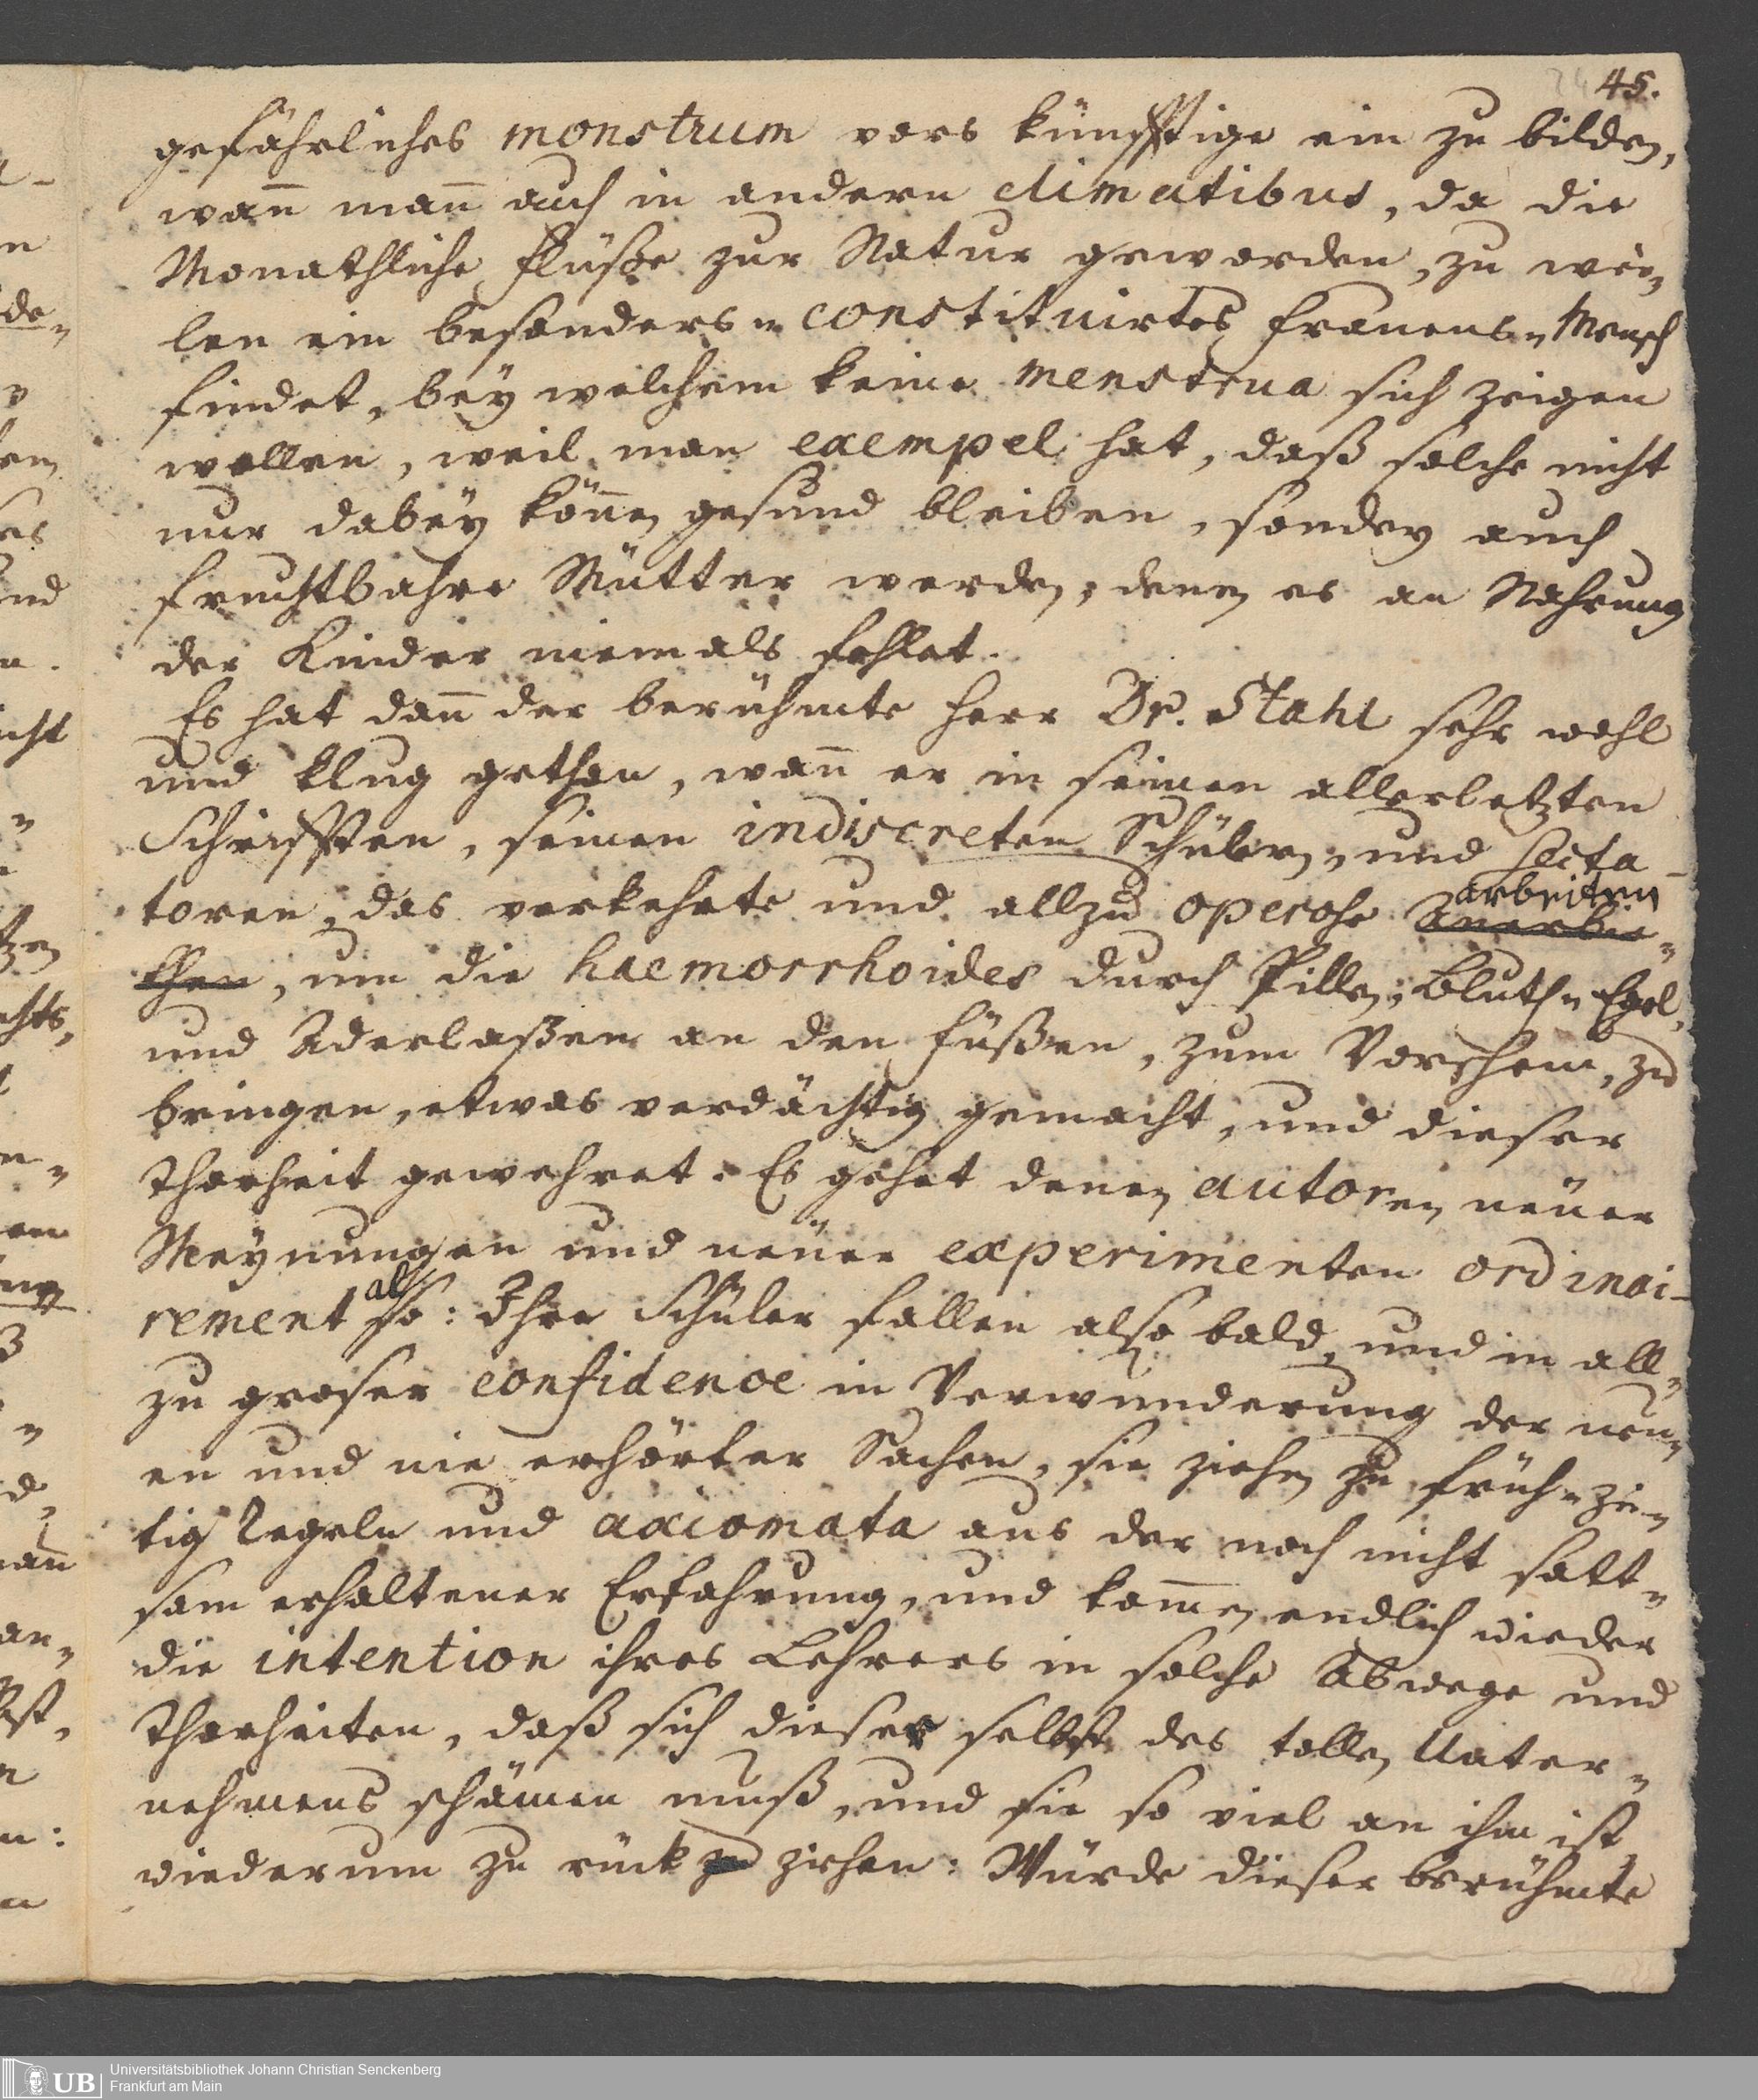 45.
gefährliches monstrum vors künfftige ein zu bilden,
wan̄ man̄ auch in andern climatibus, da die
Monathliche flüße zur Natur geworden, zu wei„
len ein besonders„ constituirtes Frauens„Mensch
findet, bey welchem keine menstrua sich zeigen
wollen, weil man exempel hat, daß solche nicht
nur dabey kön̄en gesund bleiben, sondern auch
fruchtbahre Mütter werden, denen es an Nahrung
der Kinder niemals fehlet.
Es hat dan̄ der berühmte Herr Dr. Stahl sehr wohl
und klug gethan, wan̄ er in seinen allerletzten
Schrifften, seinen indiscreten Schülern, und secta-
toren, das verkehrte und allzu operose arbeiten
, um die haemorrhoides durch Pillen, Bluth„Egel,
und Aderlaßen an den füßen, zum Vorschein, zu
bringen, etwas verdächtig gemacht, und dieser
Thorheit gewehret. Es gehet denen autoren neuer
Meynungen und neuer experimenten ordinai-
rement also: Ihre Schüler fallen also bald, und in all„
zu groser confidence in Verwunderung der neu„
en und nie erhörter Sachen, sie ziehen zu früh„zei„
tig Regeln und axiomata aus der noch nicht satt„
sam erhaltener Erfahrung, und kom̄en endlich wieder
die intention ihres Lehrers in solche Abwege und
Thorheiten, daß sich dieser selbst des tollen Unter„
nehmens schämen muß, und sie so viel an ihm ist,
wiederum zu rück ziehen: Würde dieser berühmte
UB
Universitätsbibliothek Johann Christian Senckenberg
Frankfurt am Main